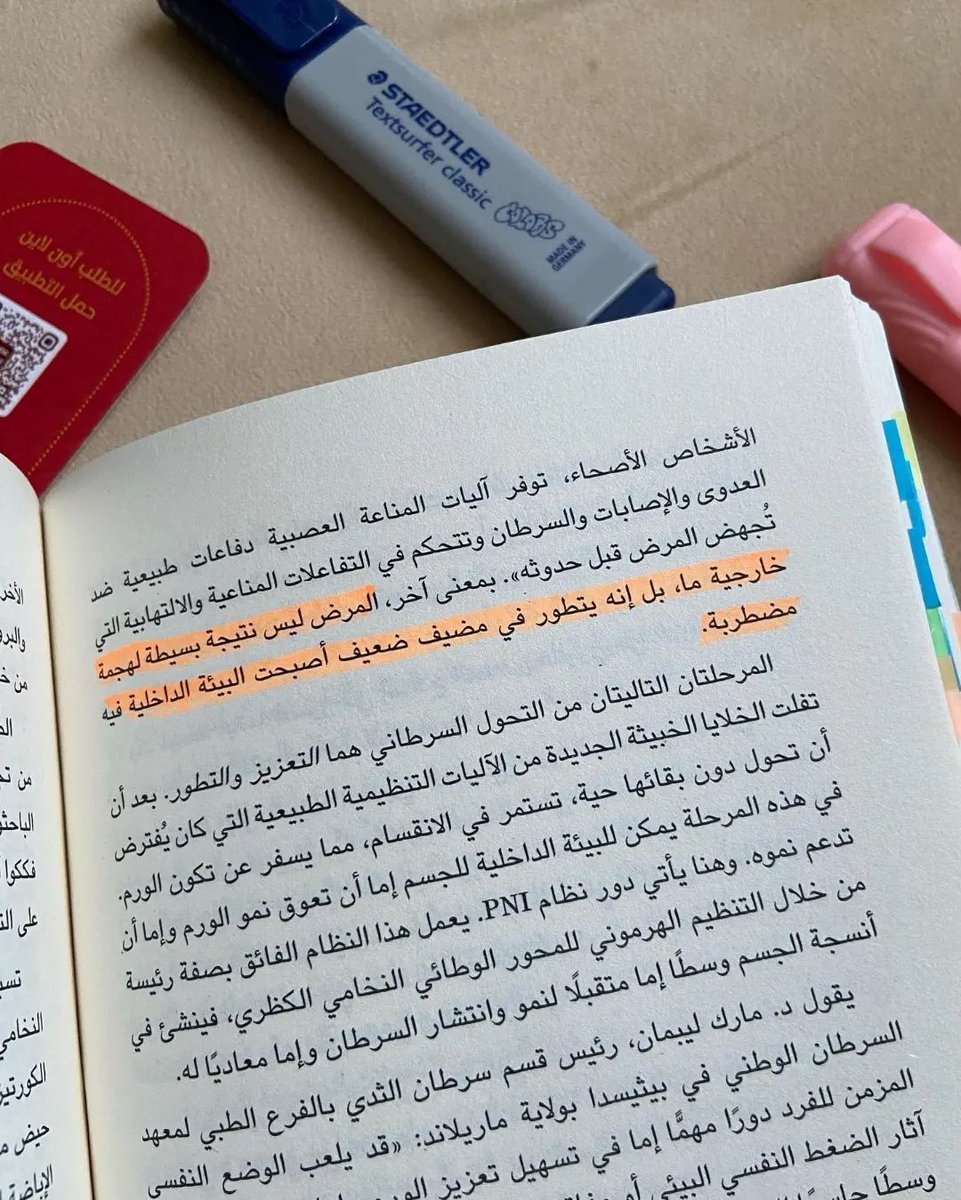 STAEDTLER
Textsurfer classic
COLORS
MADE IN
GERMANY
للطلب أون لاين
حمل التطبيق
الأشخاص الأصحاء، توفر آليات المناعة العصبية دفاعات طبيعية ضد
العدوى والإصابات والسرطان وتتحكم في التفاعلات المناعية والالتهابية التي
تُجهض المرض قبل حدوثه». بمعنى آخر، المرض ليس نتيجة بسيطة لهجمة
خارجية ما، بل إنه يتطور في مضيف ضعيف أصبحت البيئة الداخلية فيه
مضطربة.
المرحلتان التاليتان من التحول السرطاني هما التعزيز والتطور. بعد أن
تفلت الخلايا الخبيثة الجديدة من الآليات التنظيمية الطبيعية التي كان يُفترض
أن تحول دون بقائها حية، تستمر في الانقسام، مما يسفر عن تكون الورم.
في هذه المرحلة يمكن للبيئة الداخلية للجسم إما أن تعوق نمو الورم وإما أن
تدعم نموه. وهنا يأتي دور نظام PNI. يعمل هذا النظام الفائق بصفة رئيسة
من خلال التنظيم الهرموني للمحور الوطائي النخامي الكظري، فينشئ في
أنسجة الجسم وسطًا إما متقبلًا لنمو وانتشار السرطان وإما معاديًا له.
يقول د. مارك ليبمان، رئيس قسم سرطان الثدي بالفرع الطبي لمعهد
السرطان الوطني في بيثيسدا بولاية ماريلاند: «قد يلعب الوضع النفسي
المزمن للفرد دورًا مهمًّا إما في تسهيل تعزيز الورم
آثار الضغط النفسي البيئي أو
وسطًا
من
على
النخامي